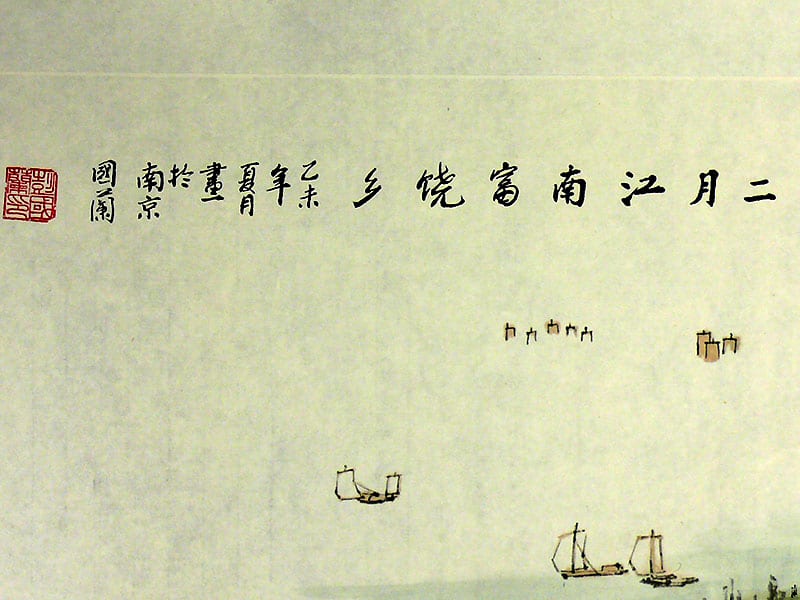 二月江南富饶乡
乙未
年
夏月
畫
於
南京
國蘭
彭國蘭印